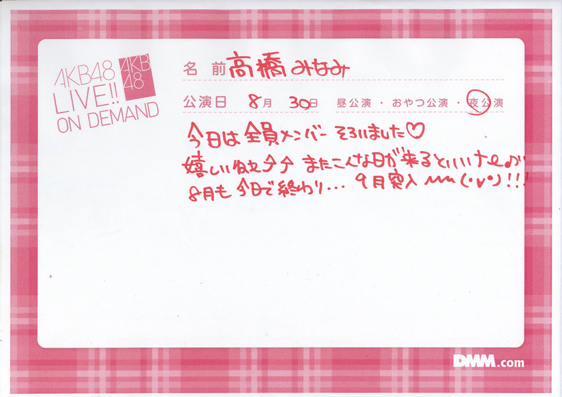 AKB48
LIVE!!
ON DEMAND
AKB
48
名 前 高橋みなみ
公演日 8月 30日 昼公演・おやつ公演・夜公演
今日は全員メンバーそろいました♡
嬉しい
またこんな日が来るといいな
8月も今日で終わり... 9月突入 (・v・)!!!
DMM.com